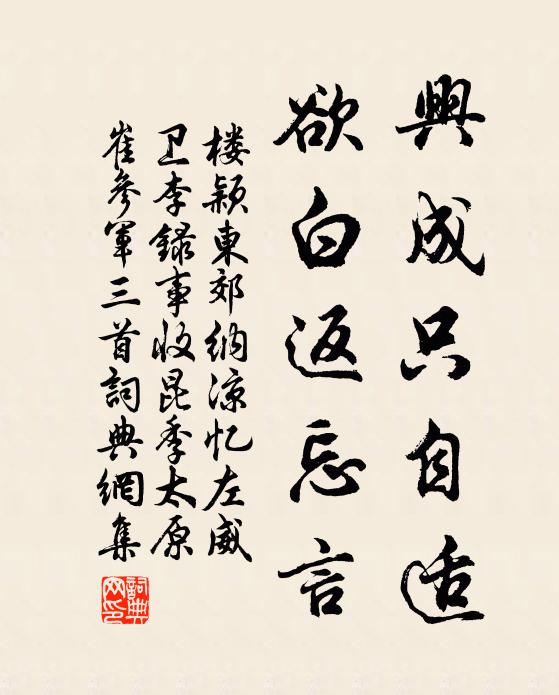 興成只自适
欲白返忘言
楼颖東郊纳涼忆左威
卫李録事收昆季太原
崔參軍三首詞典網集
詞典網印